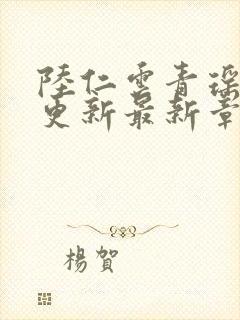 陸仁雲青瑶
更新最新章
楊賀